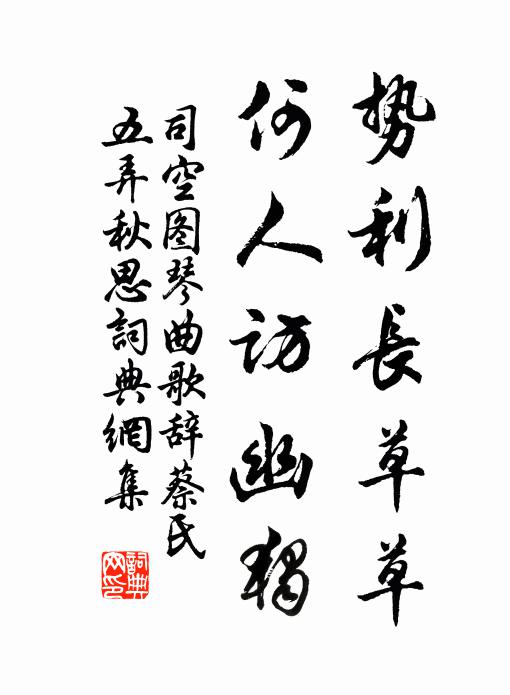 势利長草草
何人訪幽獨
司空图琴曲歌辞蔡氏
五弄秋思詞典網集
詞典
网印